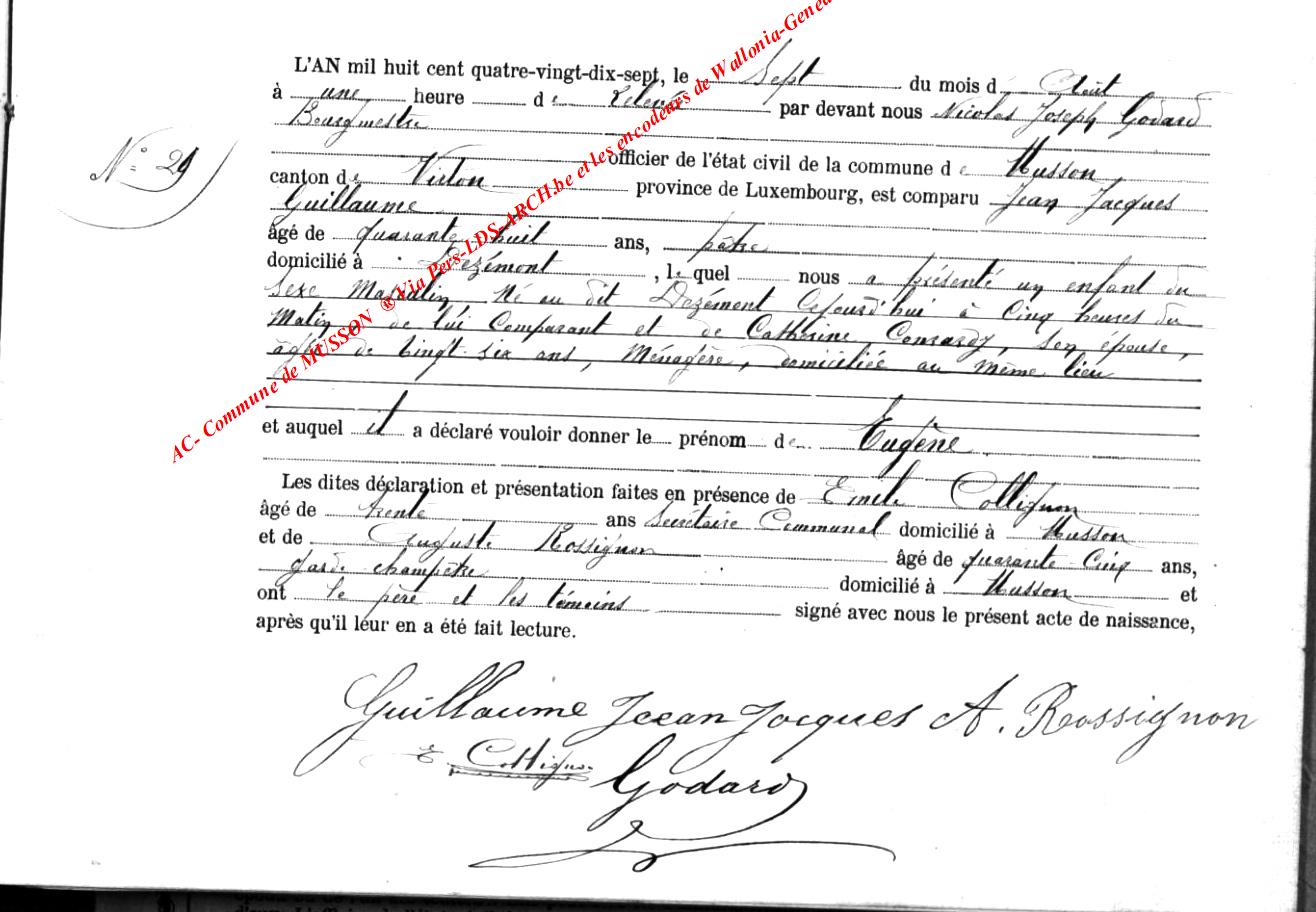 AC- Commune de MUSSON ® Via Pers-LDS-ARCH.be et les encodeurs de Wallonia-Genea
L'AN mil huit cent quatre-vingt-dix-sept, le Sept du mois d Août
à une heure de relevée par devant nous Nicolas Joseph Godard
Bourgmestre
N°
officier de l'état civil de la commune de Musson
canton de Virton province de Luxembourg, est comparu Jean Jacques
Guillaume
âgé de quarante huit ans,
domicilié à , le quel nous a présenté un enfant du
sexe Masculin, Né au dit cejourd'hui à Cinq heures du
Matin de lui Comparant et de Catherine Conrardy, son épouse,
âgée de vingt-six ans, Ménagère, domiciliée au même lieu
et auquel il a déclaré vouloir donner le prénom de Eugène
Les dites déclaration et présentation faites en présence de Emile Collignon
âgé de trente ans Secrétaire Communal domicilié à Musson
et de Auguste Rossignon âgé de quarante Cinq ans,
garde champêtre domicilié à Musson et
ont le père et les témoins signé avec nous le présent acte de naissance,
après qu'il leur en a été fait lecture.
Guillaume Jean Jacques A. Rossignon
E. Collignon
Godard